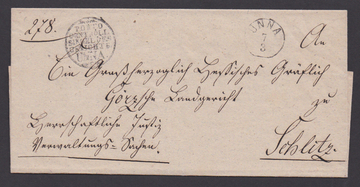 278.
UNNA
7
3
An
Ein Großherzoglich Hessisches Gräflich
Görzsche Landgericht zu
Herrschaftliche Justiz
Verwaltungs-Sachen.
Schlitz.